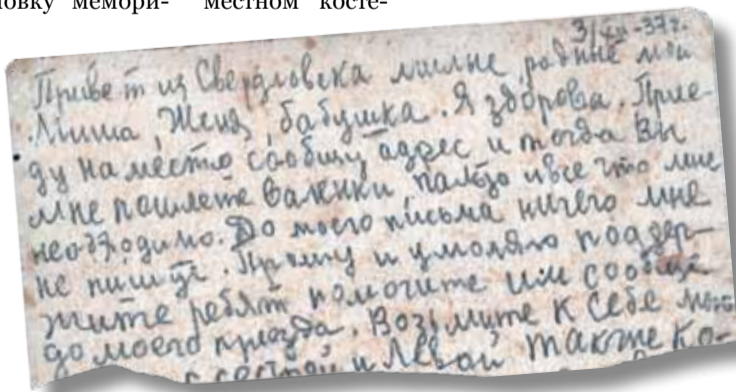 овку мемори- местном косте-
3/XII-37г.
Привет из Свердловска милые, родные мои
Миша, Женя, бабушка. Я здорова. Прие-
ду на место сообщу адрес и тогда Вы
мне пошлете валенки, пальто и все что мне
необходимо. До моего письма ничего мне
не пишите. Прошу и умоляю поддер-
жите ребят помогите им сообща
до моего приезда. Возьмите к себе
с сестрой и Левой также ко-